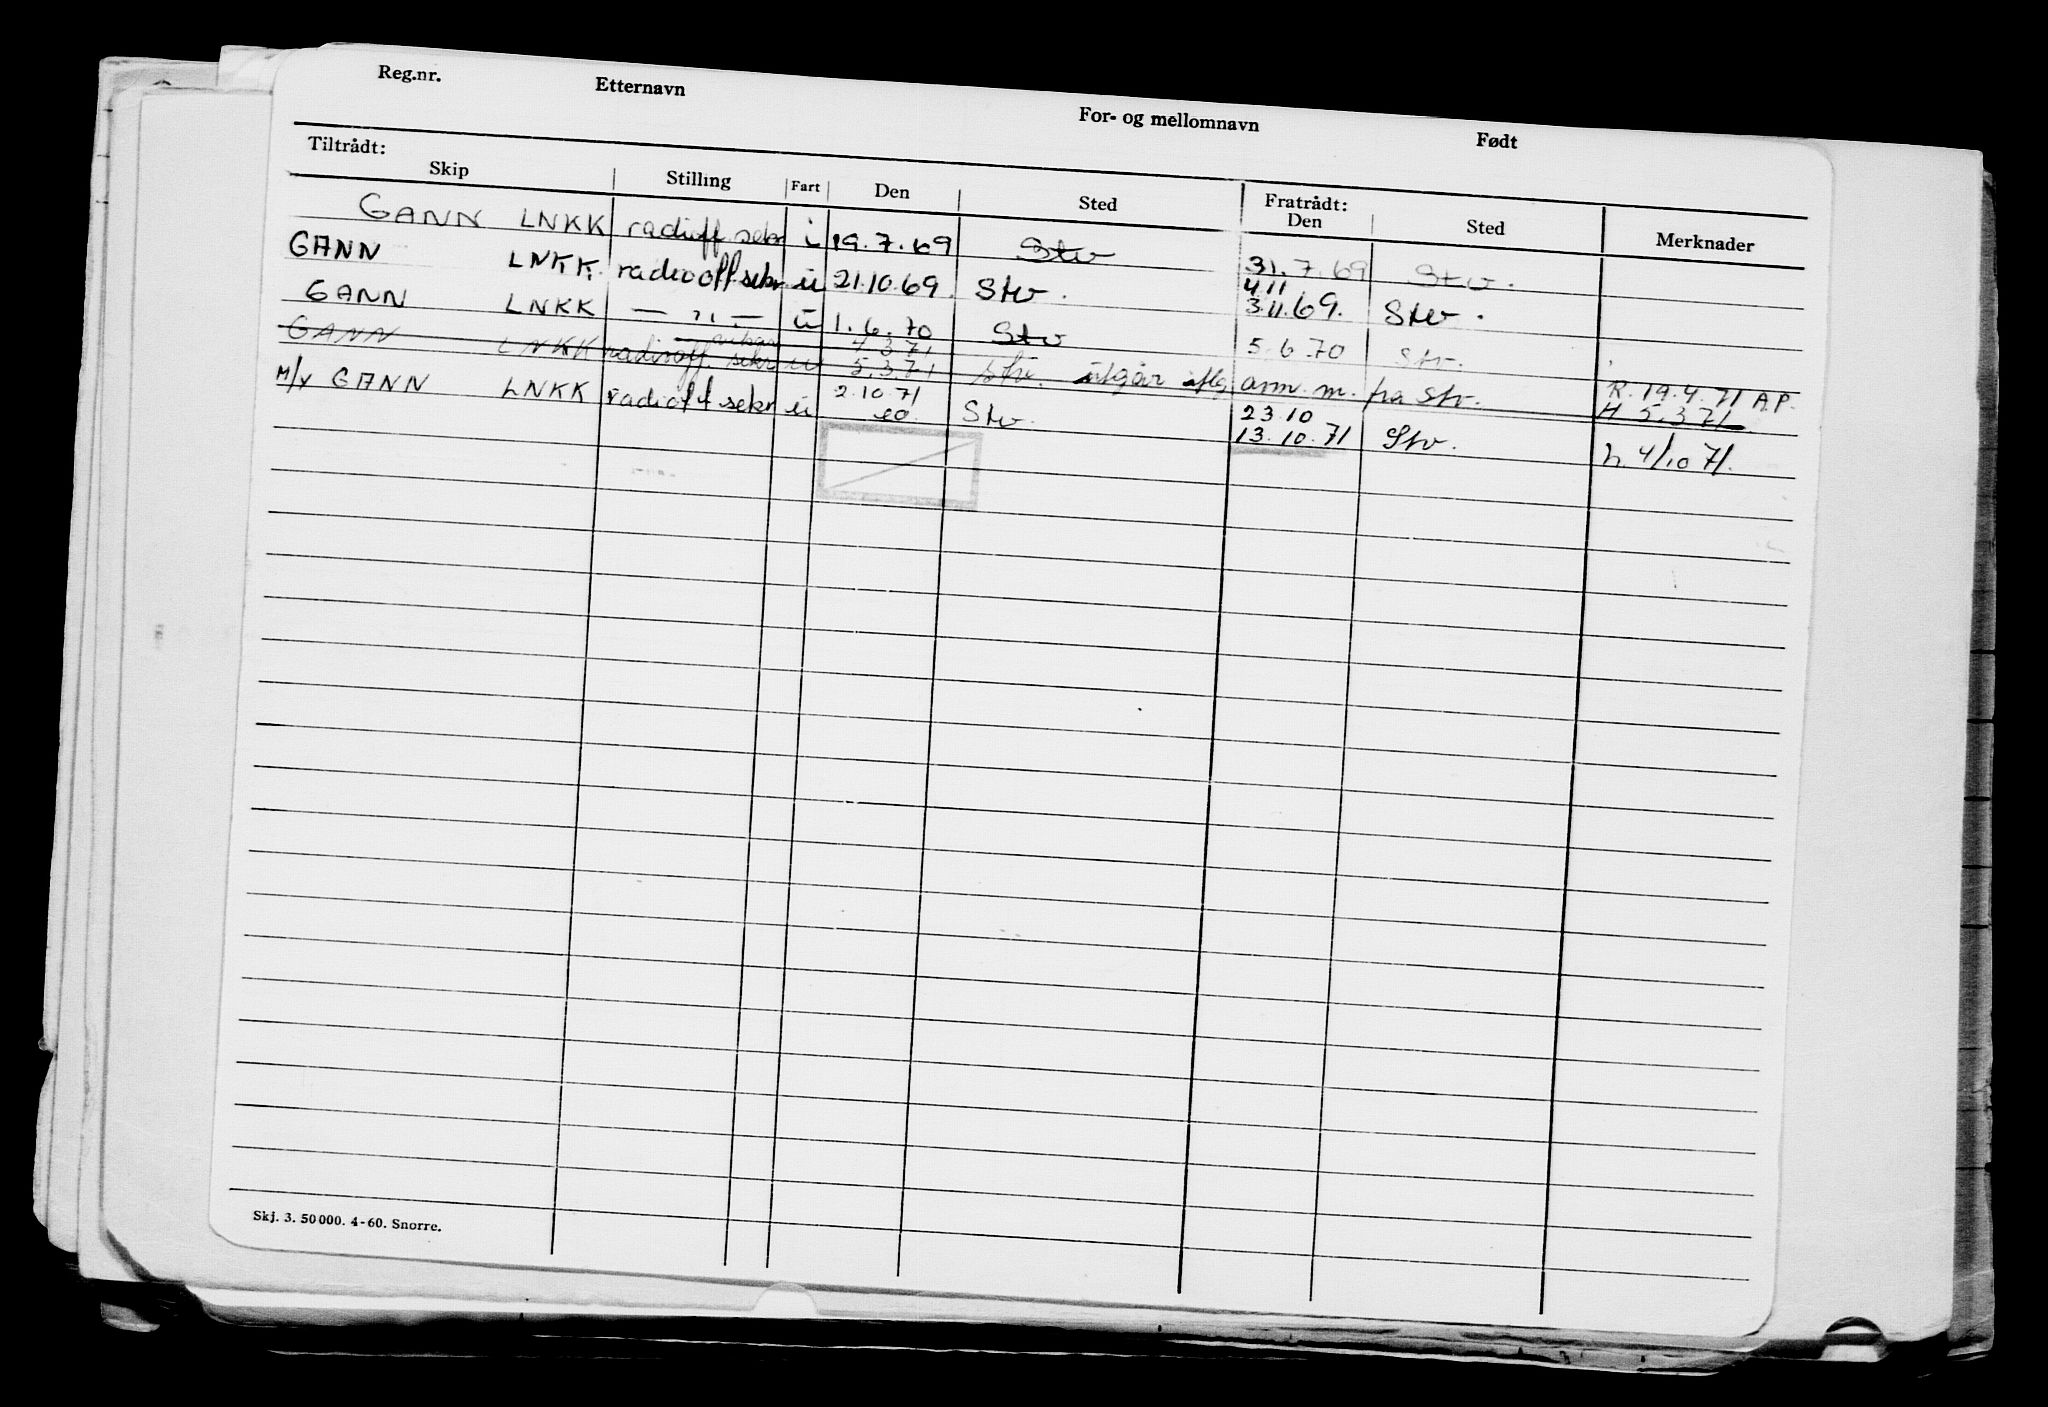 Reg.nr. Etternavn For- og mellomnavn Født
Tiltrådt: Fratrådt:
Skip Stilling Fart Den Sted Den Sted Merknader
GANN LNKK radioff sekr i 19.7.69 Stv 31.7.69 Stv.
4 11
GANN LNKK. radiooff.sekr u 21.10.69. Stv. 3.11.69. Stv.
GANN LNKK — " — u 1.6.70 Stv 5.6.70 Stv.
4.3.71
GANN LNKK radiooff. sekr u 5.3.71 Stv. utgår iflg arm. m. fra Stv. R. 19.4.71 A.P.
H 5.3.71.
2.10.71 23 10
M/Y GANN LNKK radioff sekr u Stv. 13.10.71 Stv. h. 4/10 71.
Skj. 3. 50000. 4-60. Snorre.